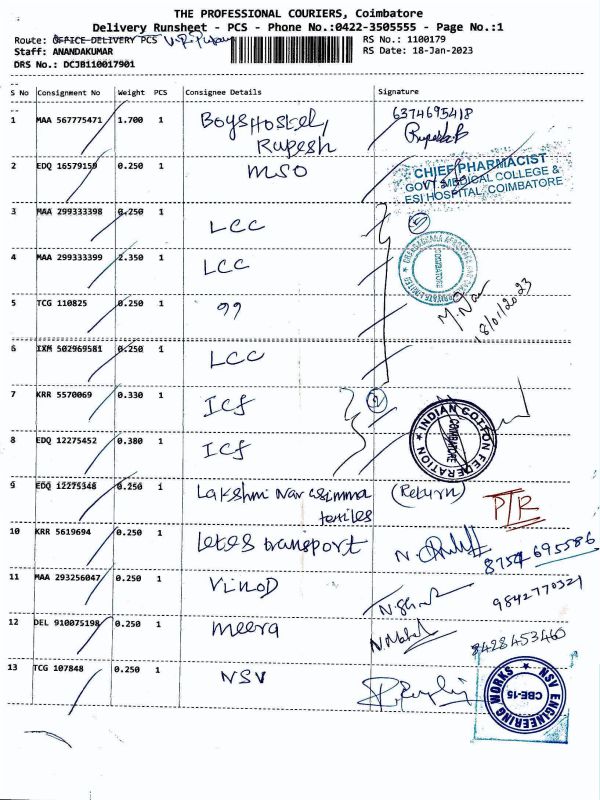 THE PROFESSIONAL COURIERS, Coimbatore
Delivery Runsheet - PCS - Phone No.:0422-3505555 - Page No.:1
Route: OFFICE DELIVERY PCS
RS No.: 1100179
Staff: ANANDAKUMAR
RS Date: 18-Jan-2023
DRS No.: DCJB110017901
S No Consignment No Weight PCS Consignee Details Signature
1 MAA 567775471 1.700 1 Boys Hostel, 6374695418
Rupesh
2 EDQ 16579159 0.250 1 MSO
CHIEF PHARMACIST
GOVT. MEDICAL COLLEGE &
ESI HOSPITAL, COIMBATORE
3 MAA 299333398 0.250 1 LCC 5
4 MAA 299333399 2.350 1 LCC
COIMBATORE
5 TCG 110825 0.250 1 99
18/01/2023
6 IXM 502969581 0.250 1 LCC
7 KRR 5570069 0.330 1 Icf 2
INDIAN COTTON FEDERATION
COIMBATORE
8 EDQ 12275452 0.380 1 Icf
9 EDQ 12275348 0.250 1 Lakshmi Narasimma (Return)
textiles
PTR
10 KRR 5619694 0.250 1 Letes transport 8754695586
11 MAA 293256047 0.250 1 Vinod 9842770321
12 DEL 910075198 0.250 1 meera 8428453460
13 TCG 107848 0.250 1 NSV
NSV ENGINEERING WORKS
CBE-15